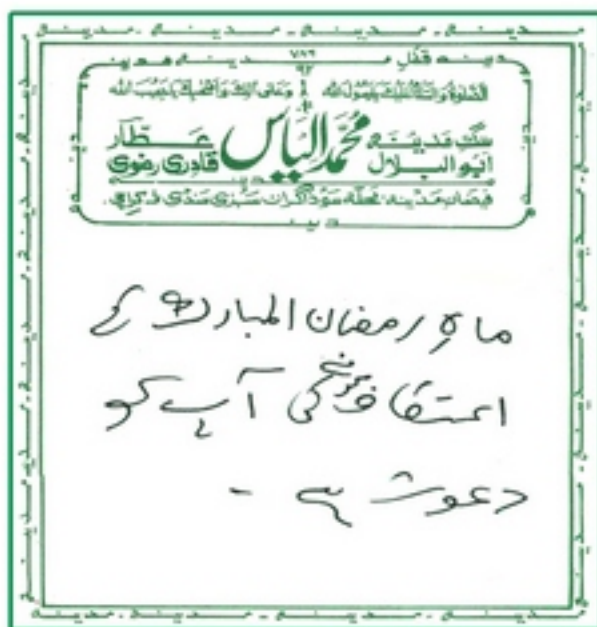 مدینہ قفل ۷۸۶ مدینہ
الصلوٰۃ والسلام علیک یارسول اللہ وعلی اٰلک واصحٰبک یاحبیب اللہ
سگ مدینہ محمد الیاس عطار
ابو البلال قادری رضوی
فیضان مدینہ محلہ سوداگران سبزی منڈی کراچی
مدینہ
ماہِ رمضان المبارک کے
اعتکاف کی آپ کو
دعوت ہے۔